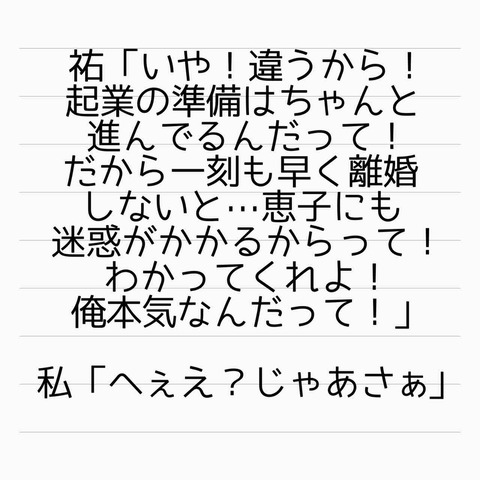 祐「いや！違うから！
起業の準備はちゃんと
進んでるんだって！
だから一刻も早く離婚
しないと…恵子にも
迷惑がかかるからって！
わかってくれよ！
俺本気なんだって！」
私「へぇえ？じゃあさぁ」